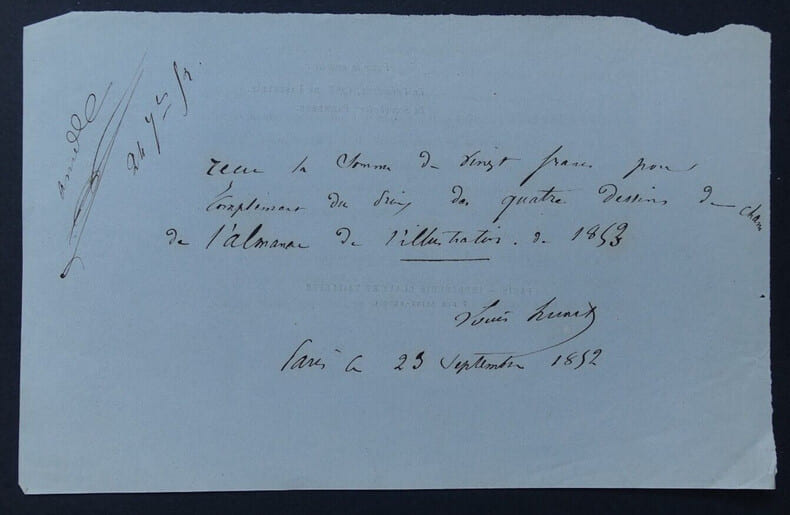 24 7bre 52.
recu la Somme de Vingt francs pour
Complément du prix des quatre Dessins de Cham
de l'almanac de l'illustration. de 1853
Louis
Paris le 23 Septembre 1852